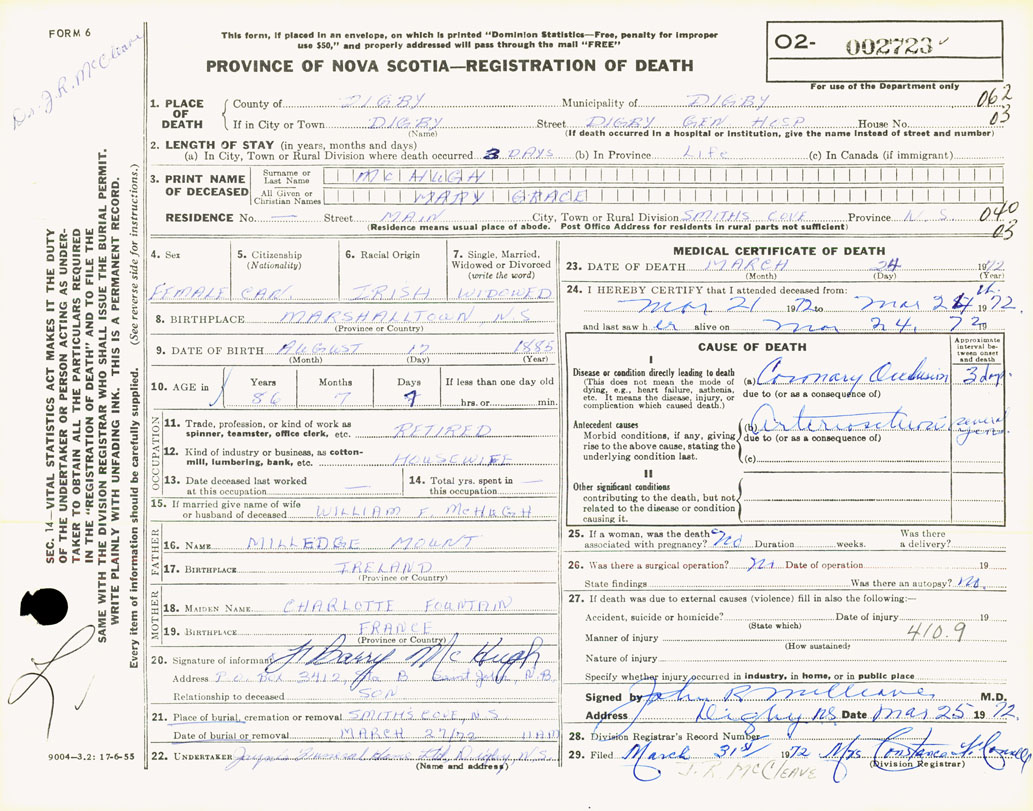 FORM 6
This form, if placed in an envelope, on which is printed "Dominion Statistics—Free, penalty for improper
use $50," and properly addressed will pass through the mail "FREE"
PROVINCE OF NOVA SCOTIA—REGISTRATION OF DEATH
02- 002723
For use of the Department only
Dr. J.R. McCleave
SEC. 14—VITAL STATISTICS ACT MAKES IT THE DUTY
OF THE UNDERTAKER OR PERSON ACTING AS UNDER-
TAKER TO OBTAIN ALL THE PARTICULARS REQUIRED
IN THE "REGISTRATION OF DEATH" AND TO FILE THE
SAME WITH THE DIVISION REGISTRAR WHO SHALL ISSUE THE BURIAL PERMIT.
WRITE PLAINLY WITH UNFADING INK. THIS IS A PERMANENT RECORD.
Every item of information should be carefully supplied. (See reverse side for instructions.)
1. PLACE OF DEATH County of DIGBY Municipality of DIGBY 062
If in City or Town DIGBY Street DIGBY GEN HOSP House No. 03
(Name) (If death occurred in a hospital or institution, give the name instead of street and number)
2. LENGTH OF STAY (in years, months and days)
(a) In City, Town or Rural Division where death occurred 3 DAYS (b) In Province Life (c) In Canada (if immigrant)
3. PRINT NAME OF DECEASED Surname or Last Name MCHUGH
All Given or Christian Names MARY GRACE
RESIDENCE No. — Street MAIN City, Town or Rural Division SMITHS COVE Province N.S. 040
(Residence means usual place of abode. Post Office Address for residents in rural parts not sufficient) 03
4. Sex 5. Citizenship (Nationality) 6. Racial Origin 7. Single, Married, Widowed or Divorced (write the word)
FEMALE CAN. IRISH WIDOWED
8. BIRTHPLACE MARSHALLTOWN, N.S
(Province or Country)
9. DATE OF BIRTH AUGUST 17 1885
(Month) (Day) (Year)
10. AGE in Years Months Days If less than one day old
86 7 7 hrs. or min.
OCCUPATION
11. Trade, profession, or kind of work as spinner, teamster, office clerk, etc. RETIRED
12. Kind of industry or business, as cotton-mill, lumbering, bank, etc. HOUSEWIFE
13. Date deceased last worked at this occupation — 14. Total yrs. spent in this occupation —
15. If married give name of wife or husband of deceased WILLIAM F. McHUGH
FATHER
16. NAME MILLEDGE MOUNT
17. BIRTHPLACE IRELAND
(Province or Country)
MOTHER
18. MAIDEN NAME CHARLOTTE FOUNTAIN
19. BIRTHPLACE FRANCE
(Province or Country)
20. Signature of informant F Barry McHugh
Address P.O. Box 3412, Sta B Saint John, N.B.
Relationship to deceased SON
21. Place of burial, cremation or removal SMITHS COVE, N.S
Date of burial or removal MARCH 27/72 11 AM
22. UNDERTAKER Funeral Home Ltd. Digby, N.S.
(Name and address)
9004—3.2: 17-6-55
MEDICAL CERTIFICATE OF DEATH
23. DATE OF DEATH MARCH 24 1972
(Month) (Day) (Year)
24. I HEREBY CERTIFY that I attended deceased from:
Mar 21 1972 to Mar 24th 1972.
and last saw her alive on Mar 24, 72 19
CAUSE OF DEATH
Approximate interval between onset and death
I
Disease or condition directly leading to death
(This does not mean the mode of dying, e.g., heart failure, asthenia, etc. It means the disease, injury, or complication which caused death.)
(a) Coronary Occlusion 3 days
due to (or as a consequence of)
Antecedent causes
Morbid conditions, if any, giving rise to the above cause, stating the underlying condition last.
(b) several years
due to (or as a consequence of)
(c)
II
Other significant conditions
contributing to the death, but not related to the disease or condition causing it.
25. If a woman, was the death associated with pregnancy? No Duration weeks. Was there a delivery?
26. Was there a surgical operation? No Date of operation 19
State findings Was there an autopsy? No.
27. If death was due to external causes (violence) fill in also the following:—
Accident, suicide or homicide? Date of injury 19
(State which)
Manner of injury 410.9
(How sustained)
Nature of injury
Specify whether injury occurred in industry, in home, or in public place
Signed by John R McCleave M.D.
Address Digby NS Date Mar 25 1972.
28. Division Registrar's Record Number
29. Filed March 31st 1972 Mrs Constance
J.R. McCLEAVE (Division Registrar)